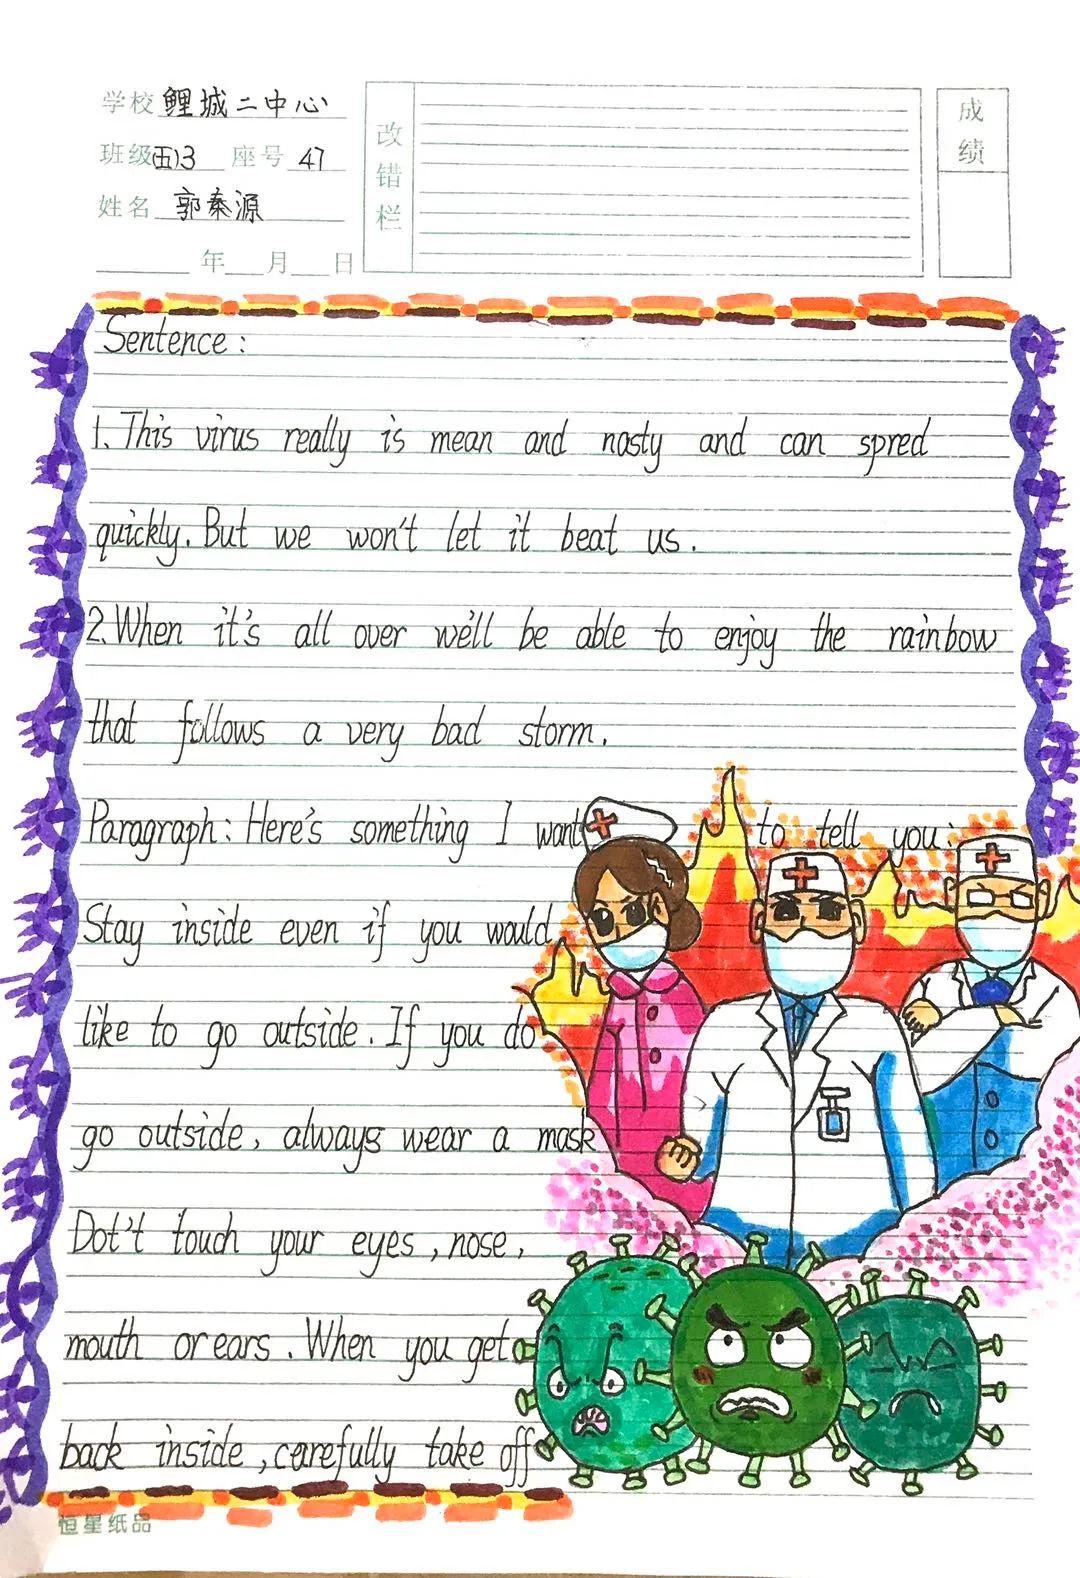 学校 鲤城二中心
班级 (五)3 座号 47
姓名 郭秦源
年 月 日
改错栏
成绩
Sentence:
1. This virus really is mean and nasty and can spred
quickly. But we won't let it beat us.
2. When it's all over we'll be able to enjoy the rainbow
that follows a very bad storm.
Paragraph: Here's something I want to tell you:
Stay inside even if you would
like to go outside. If you do
go outside, always wear a mask
Dot't touch your eyes, nose,
mouth or ears. When you get
back inside, carefully take off
恒星纸品